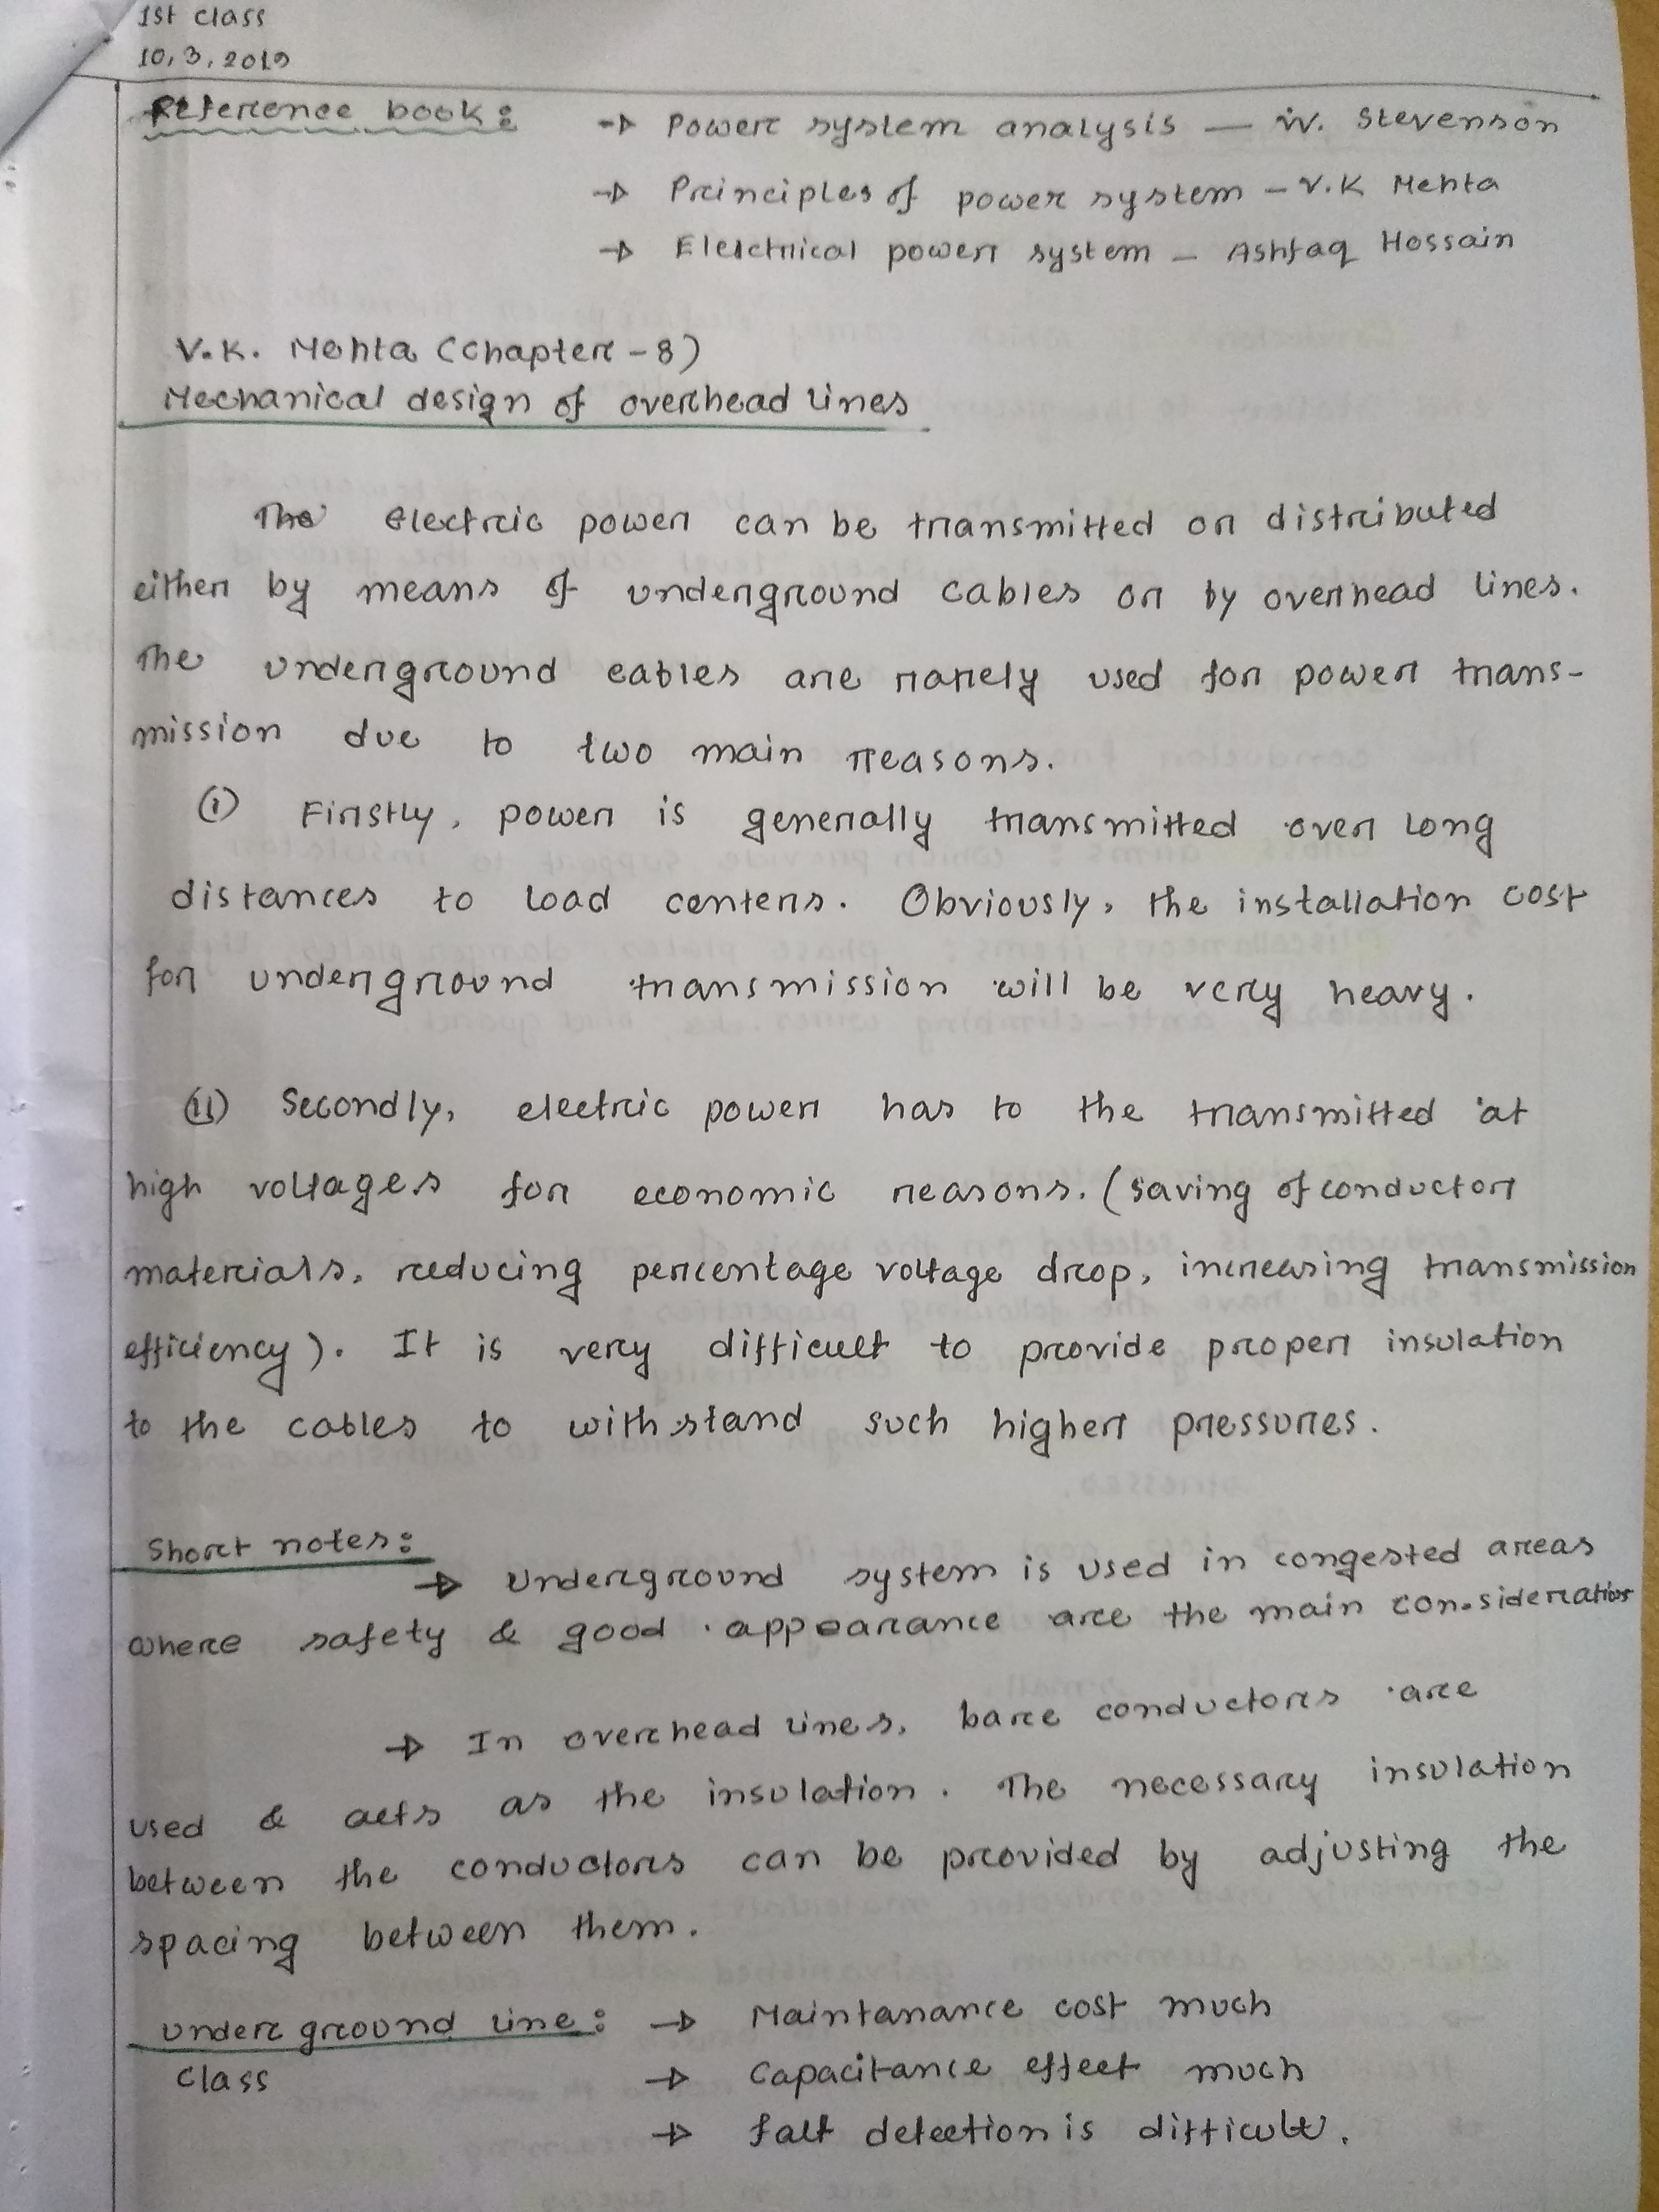 1st class
10, 3, 2019
Reference book:
→ Power system analysis — W. Stevenson
→ Principles of power system – V.K Mehta
→ Elelctrical power system – Ashfaq Hossain
V.K. Mehta (Chapter - 8)
Mechanical design of overhead lines
The electric power can be transmitted or distributed
either by means of underground cables or by overhead lines.
The underground cables are rarely used for power trans-
mission due to two main reasons.
(i) Firstly, power is generally transmitted over long
distances to load centers. Obviously, the installation cost
for underground transmission will be very heavy.
(ii) Secondly, electric power has to the transmitted at
high voltages for economic reasons. (saving of conductor
materials, reducing percentage voltage drop, increasing transmission
efficiency). It is very difficult to provide proper insulation
to the cables to withstand such higher pressures.
Short notes:
→ Underground system is used in congested areas
where safety & good appearance are the main consideration
→ In overhead lines, bare conductors are
used & acts as the insulation. The necessary insulation
between the conductors can be provided by adjusting the
spacing between them.
underground line: → Maintanance cost much
class → Capacitance effect much
→ falt detection is difficult.